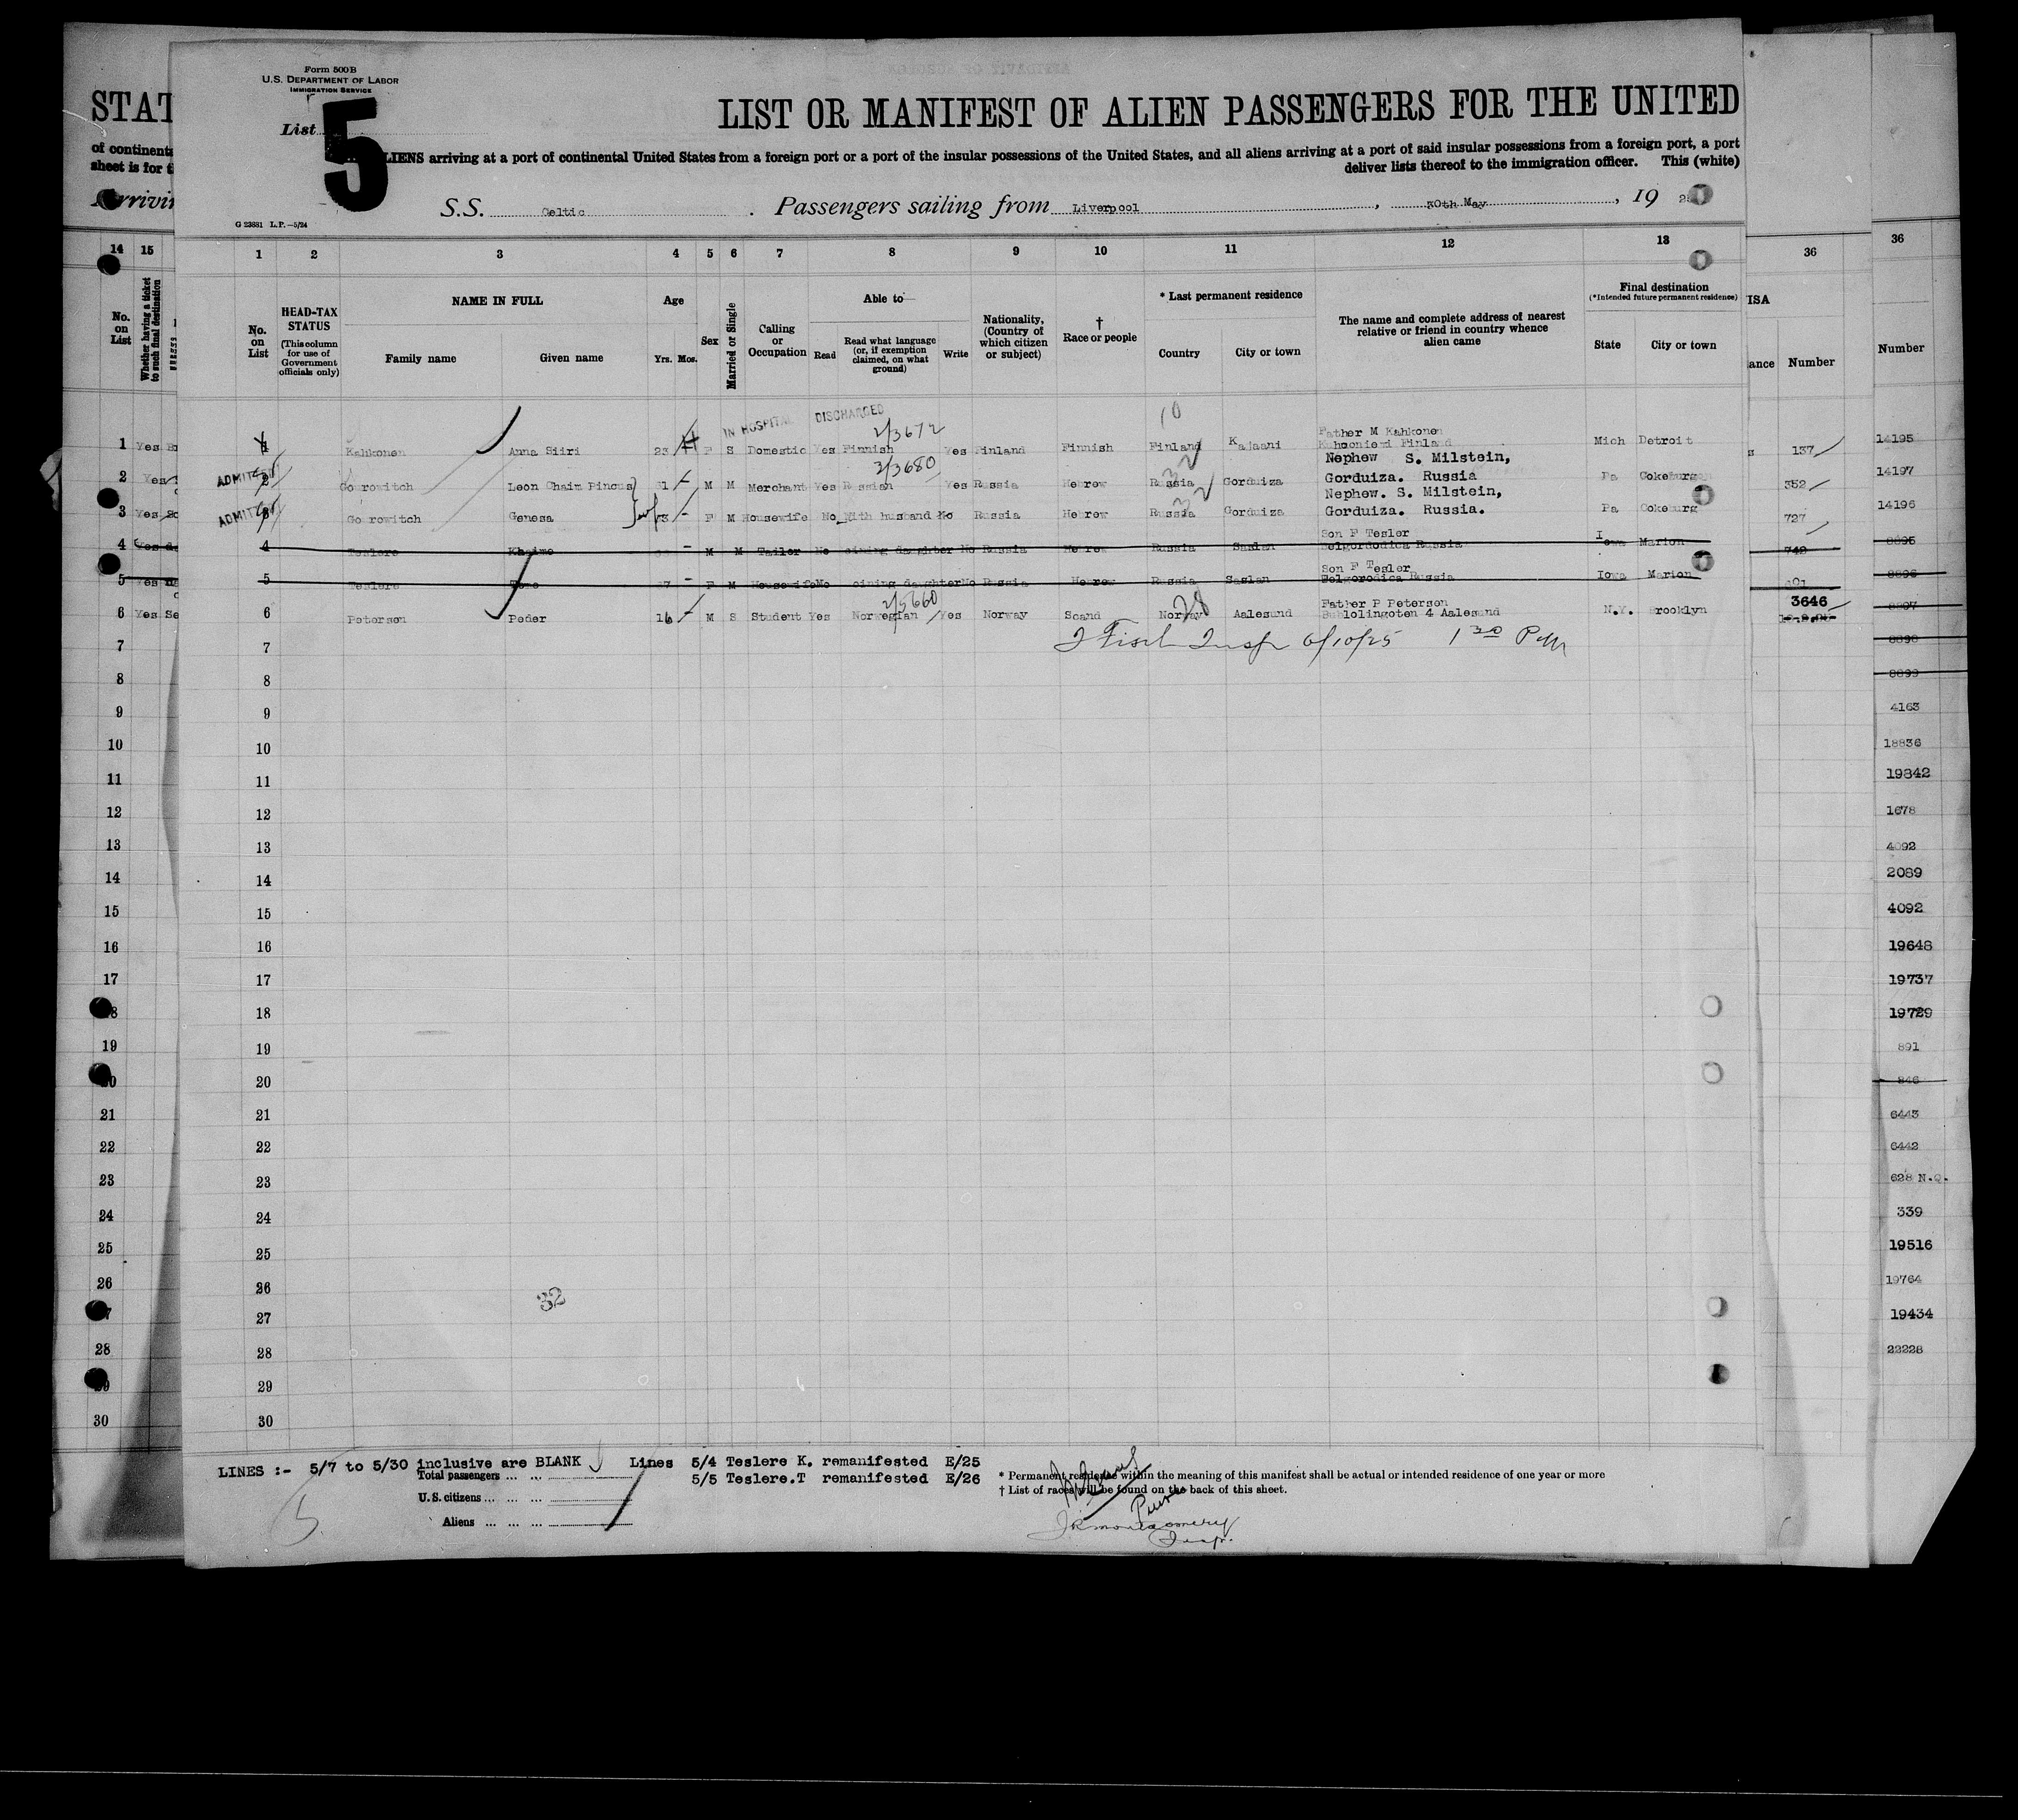 Form 500 B
U.S. DEPARTMENT OF LABOR
IMMIGRATION SERVICE
STAT
List 5
LIST OR MANIFEST OF ALIEN PASSENGERS FOR THE UNITED
of continenta
sheet is for t
LIENS arriving at a port of continental United States from a foreign port or a port of the insular possessions of the United States, and all aliens arriving at a port of said insular possessions from a foreign port, a port
deliver lists thereof to the immigration officer. This (white)
S.S. Celtic . Passengers sailing from Liverpool , 30th May , 19 2
G 23881 L.P.—5/24
14 15 1 2 3 4 5 6 7 8 9 10 11 12 13 36 36
No. on List
Whether having a ticket to such final destination
No. on List
HEAD-TAX STATUS
(This column for use of Government officials only)
NAME IN FULL
Family name Given name
Age
Yrs. Mos.
Sex
Married or Single
Calling or Occupation
Able to
Read Read what language (or, if exemption claimed, on what ground) Write
Nationality, (Country of which citizen or subject)
† Race or people
* Last permanent residence
Country City or town
The name and complete address of nearest relative or friend in country whence alien came
Final destination
(*Intended future permanent residence)
State City or town
ISA
ance Number Number
IN HOSPITAL DISCHARGED 10
2/3672
1 Yes 1 Kahkonen Anna Siiri 23 F S Domestic Yes Finnish Yes Finland Finnish Finland Kajaani Father M Kahkonen Finland Mich Detroit 137 14195
ADMITTED 2/3680
2 Yes 2 Gourowitch Leon Chaim Pincus 61 - M M Merchant Yes Russian Yes Russia Hebrew Russia Gorduiza Nephew S. Milstein, Gorduiza. Russia Pa Cokeburg 352 14197
ADMITTED
3 Yes 3 Gourowitch Genesa - F M Housewife No With husband No Russia Hebrew Russia Gorduiza Nephew. S. Milstein, Gorduiza. Russia. Pa Cokeburg 727 14196
4 Yes 4 Teslere Khaimo - M M Tailor No oining daughter No Russia Hebrew Russia Saslan Son F Tesler Belgorodica Russia Iowa Marion 742 8895
5 Yes 5 Teslere 57 - F M Housewife No oining daughter No Russia Hebrew Russia Saslan Son F Tesler Belgorodica Russia Iowa Marion 8896
2/3660
6 Yes Se 6 Peterson Peder 16 - M S Student Yes Norwegian Yes Norway Scand Norway 28 Aalesund Father P Peterson 4 Aalesund N.Y. Brooklyn 3646 8897
7 7 Insp 6/10/25 1 30 PM 8898
8 8 8899
9 9 4163
10 10 18836
11 11 19842
12 12 1678
13 13 4092
14 14 2089
15 15 4092
16 16 19648
17 17 19737
18 18 19729
19 19 891
20 20 846
21 21 6443
22 22 6442
23 23 628 N.Q.
24 24 339
25 25 19516
26 26 19764
32
27 27 19434
28 28 22228
29 29
30 30
LINES :- 5/7 to 5/30 inclusive are BLANK Lines 5/4 Teslere K. remanifested E/25
5/5 Teslere.T remanifested E/26
Total passengers ... ...
U.S. citizens ... ... ...
Aliens ... ... ...
* Permanent residence within the meaning of this manifest shall be actual or intended residence of one year or more
† List of races will be found on the back of this sheet.
5
J R Montgomery
Insp.